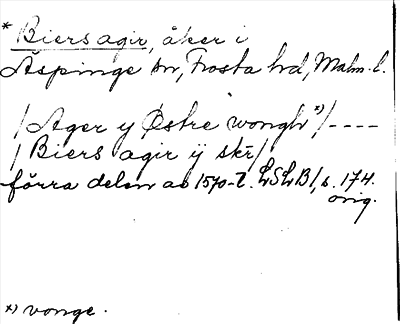 * Biers agir, åker i
Äspinge sn, Frosta hd, Malm. l.
/ Ager y Østre wongh *)/ ----
/ Biers agir ÿ skr/
förra delen av 1570-t. LSLB 1, s. 174.
orig.
*) vonge.